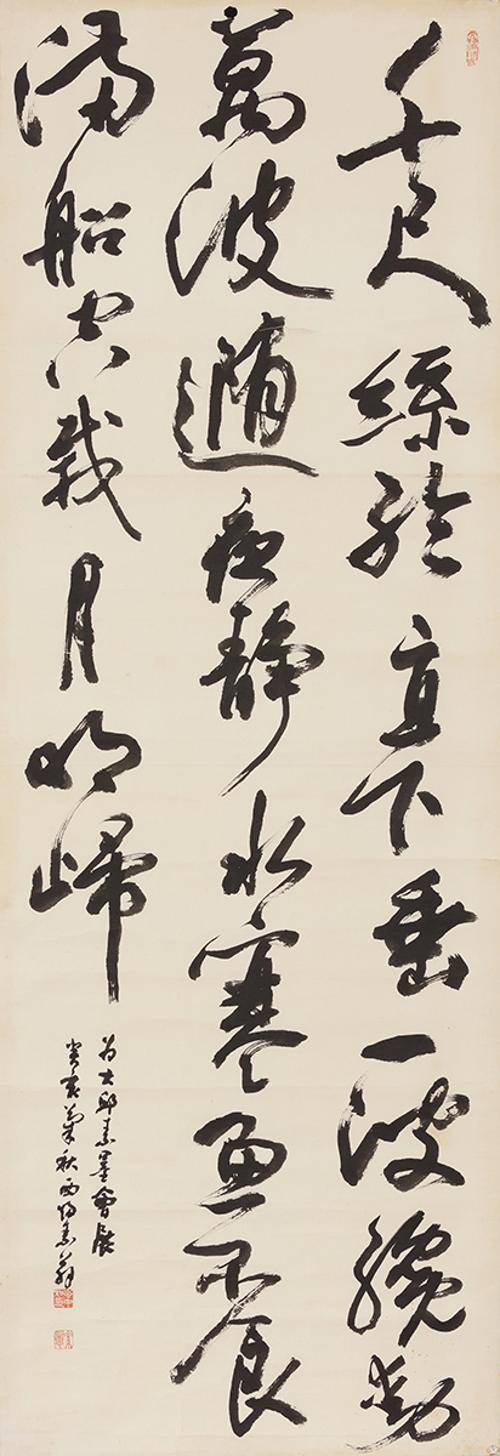 千尺絲綸直下垂一波纔動
萬波隨夜靜水寒魚不食
滿船空載月明歸
為大邱素墨會展
癸亥菊秋西坡素翁